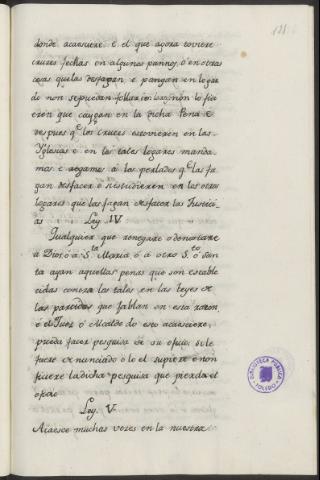 121.
donde acaesciere. e el que agora toviere
cruzes fechas en algunos pannos, ó en otras
cosas que las desfagan e pongan en logar
do non se puedan follar: non lo ficie
ren que caygan en la dicha Pena e
despues q.e los cruces estovieren en las
Yglesias e en los tales logares manda
mos e rogamos á los perlados q.e las fa
gan desfacer é si estudieren en los otros
logares que las fagan desfacer las Justici
as Ley. IV.
Qualquier que renegare ó denostare
á Dios, ó á S.ta Maria, ó á otro S.to ó San
ta ayan aquellas penas que son estable
cidas contra los tales en las leyes de
las partidas que fablan en esta razon,
é el Juez ó Alcalde do esto acaesciere,
pueda facer pesquisa de su oficio si le
fuere denunciado ó lo el supiere e non
ficiere la dicha pesquisa que pierda el
oficio
Ley. V.
Acaesce muchas vezes en la nuestra
BIBLIOTECA PUBLICA
TOLEDO